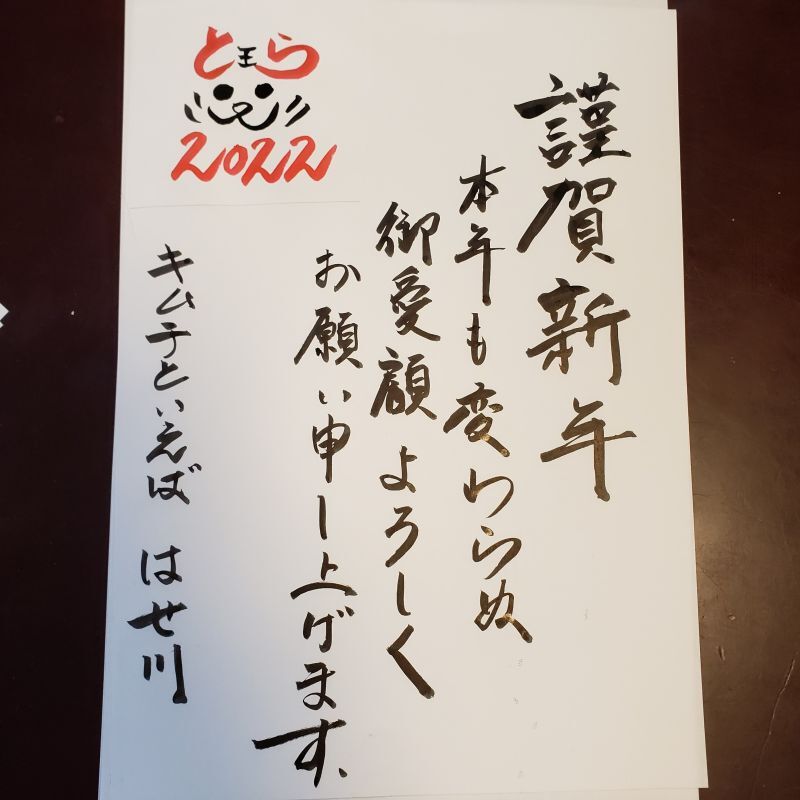 と王ら
2022
謹賀新年
本年も変わらぬ
御愛顧よろしく
お願い申し上げます、
キムチといえば はせ川